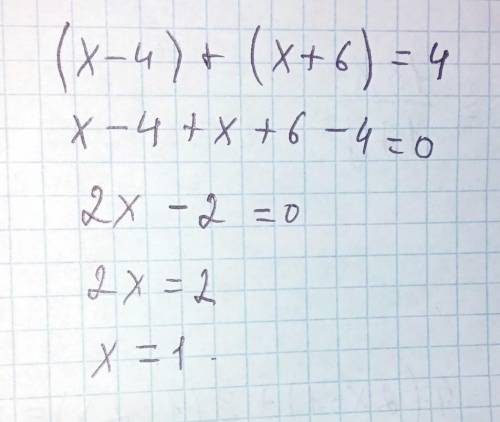 (x-4)+(x+6)=4
x-4+x+6-4=0
2x-2=0
2x=2
x=1.